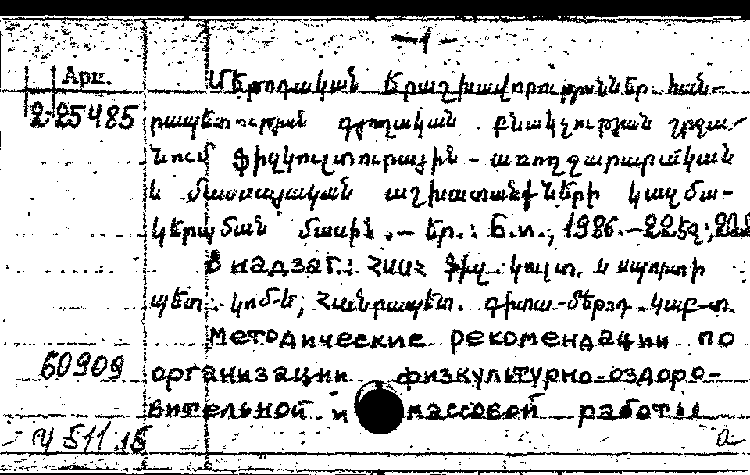 Арм.
2-25485
Մեթոդական երաշխավորություններ հան-
րապետության գյուղական բնակչության շրջա-
նում ֆիզկուլտուրային-առողջարարական
և մասսայական աշխատանքների կազմա-
կերպման մասին .- Եր.: Б.и., 1986.-22 էջ;
В надзаг.: ՀՍՍՀ ֆիզ. կուլտ. և սպորտի
պետ. կոմ-ե, Հանրապետ. գիտա-մեթոդ. կաբ-տ.
Методические рекомендации по
60909
организации физкультурно-оздоро-
вительной и массовой работы
Ч 511.15